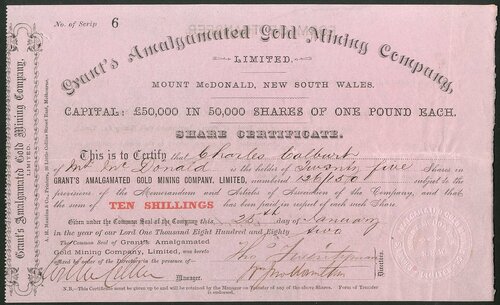 No. of Scrip 6
Grant's Amalgamated Gold Mining Company,
LIMITED.
MOUNT McDONALD, NEW SOUTH WALES.
CAPITAL: £50,000 IN 50,000 SHARES OF ONE POUND EACH.
SHARE CERTIFICATE.
This is to Certify that Charles Colburt
of Mt McDonald is the holder of Seventy five Shares in
GRANT'S AMALGAMATED GOLD MINING COMPANY, LIMITED, numbered subject to the
provisions of the Memorandum and Articles of Association of the Company, and that
the sum of TEN SHILLINGS has been paid in respect of each such Share.
Given under the Common Seal of the Company this 26th day of January
in the year of our Lord One Thousand Eight Hundred and Eighty two
The Common Seal of Grant's Amalgamated
Gold Mining Company, Limited, was hereto
affixed by order of the Directors in the presence of
Manager.
Directors.
N.B.—This Certificate must be given up to and will be retained by the Manager on Transfer of any of the above Shares. Form of Transfer
is endorsed.
Grant's Amalgamated Gold Mining Company,
LIMITED.